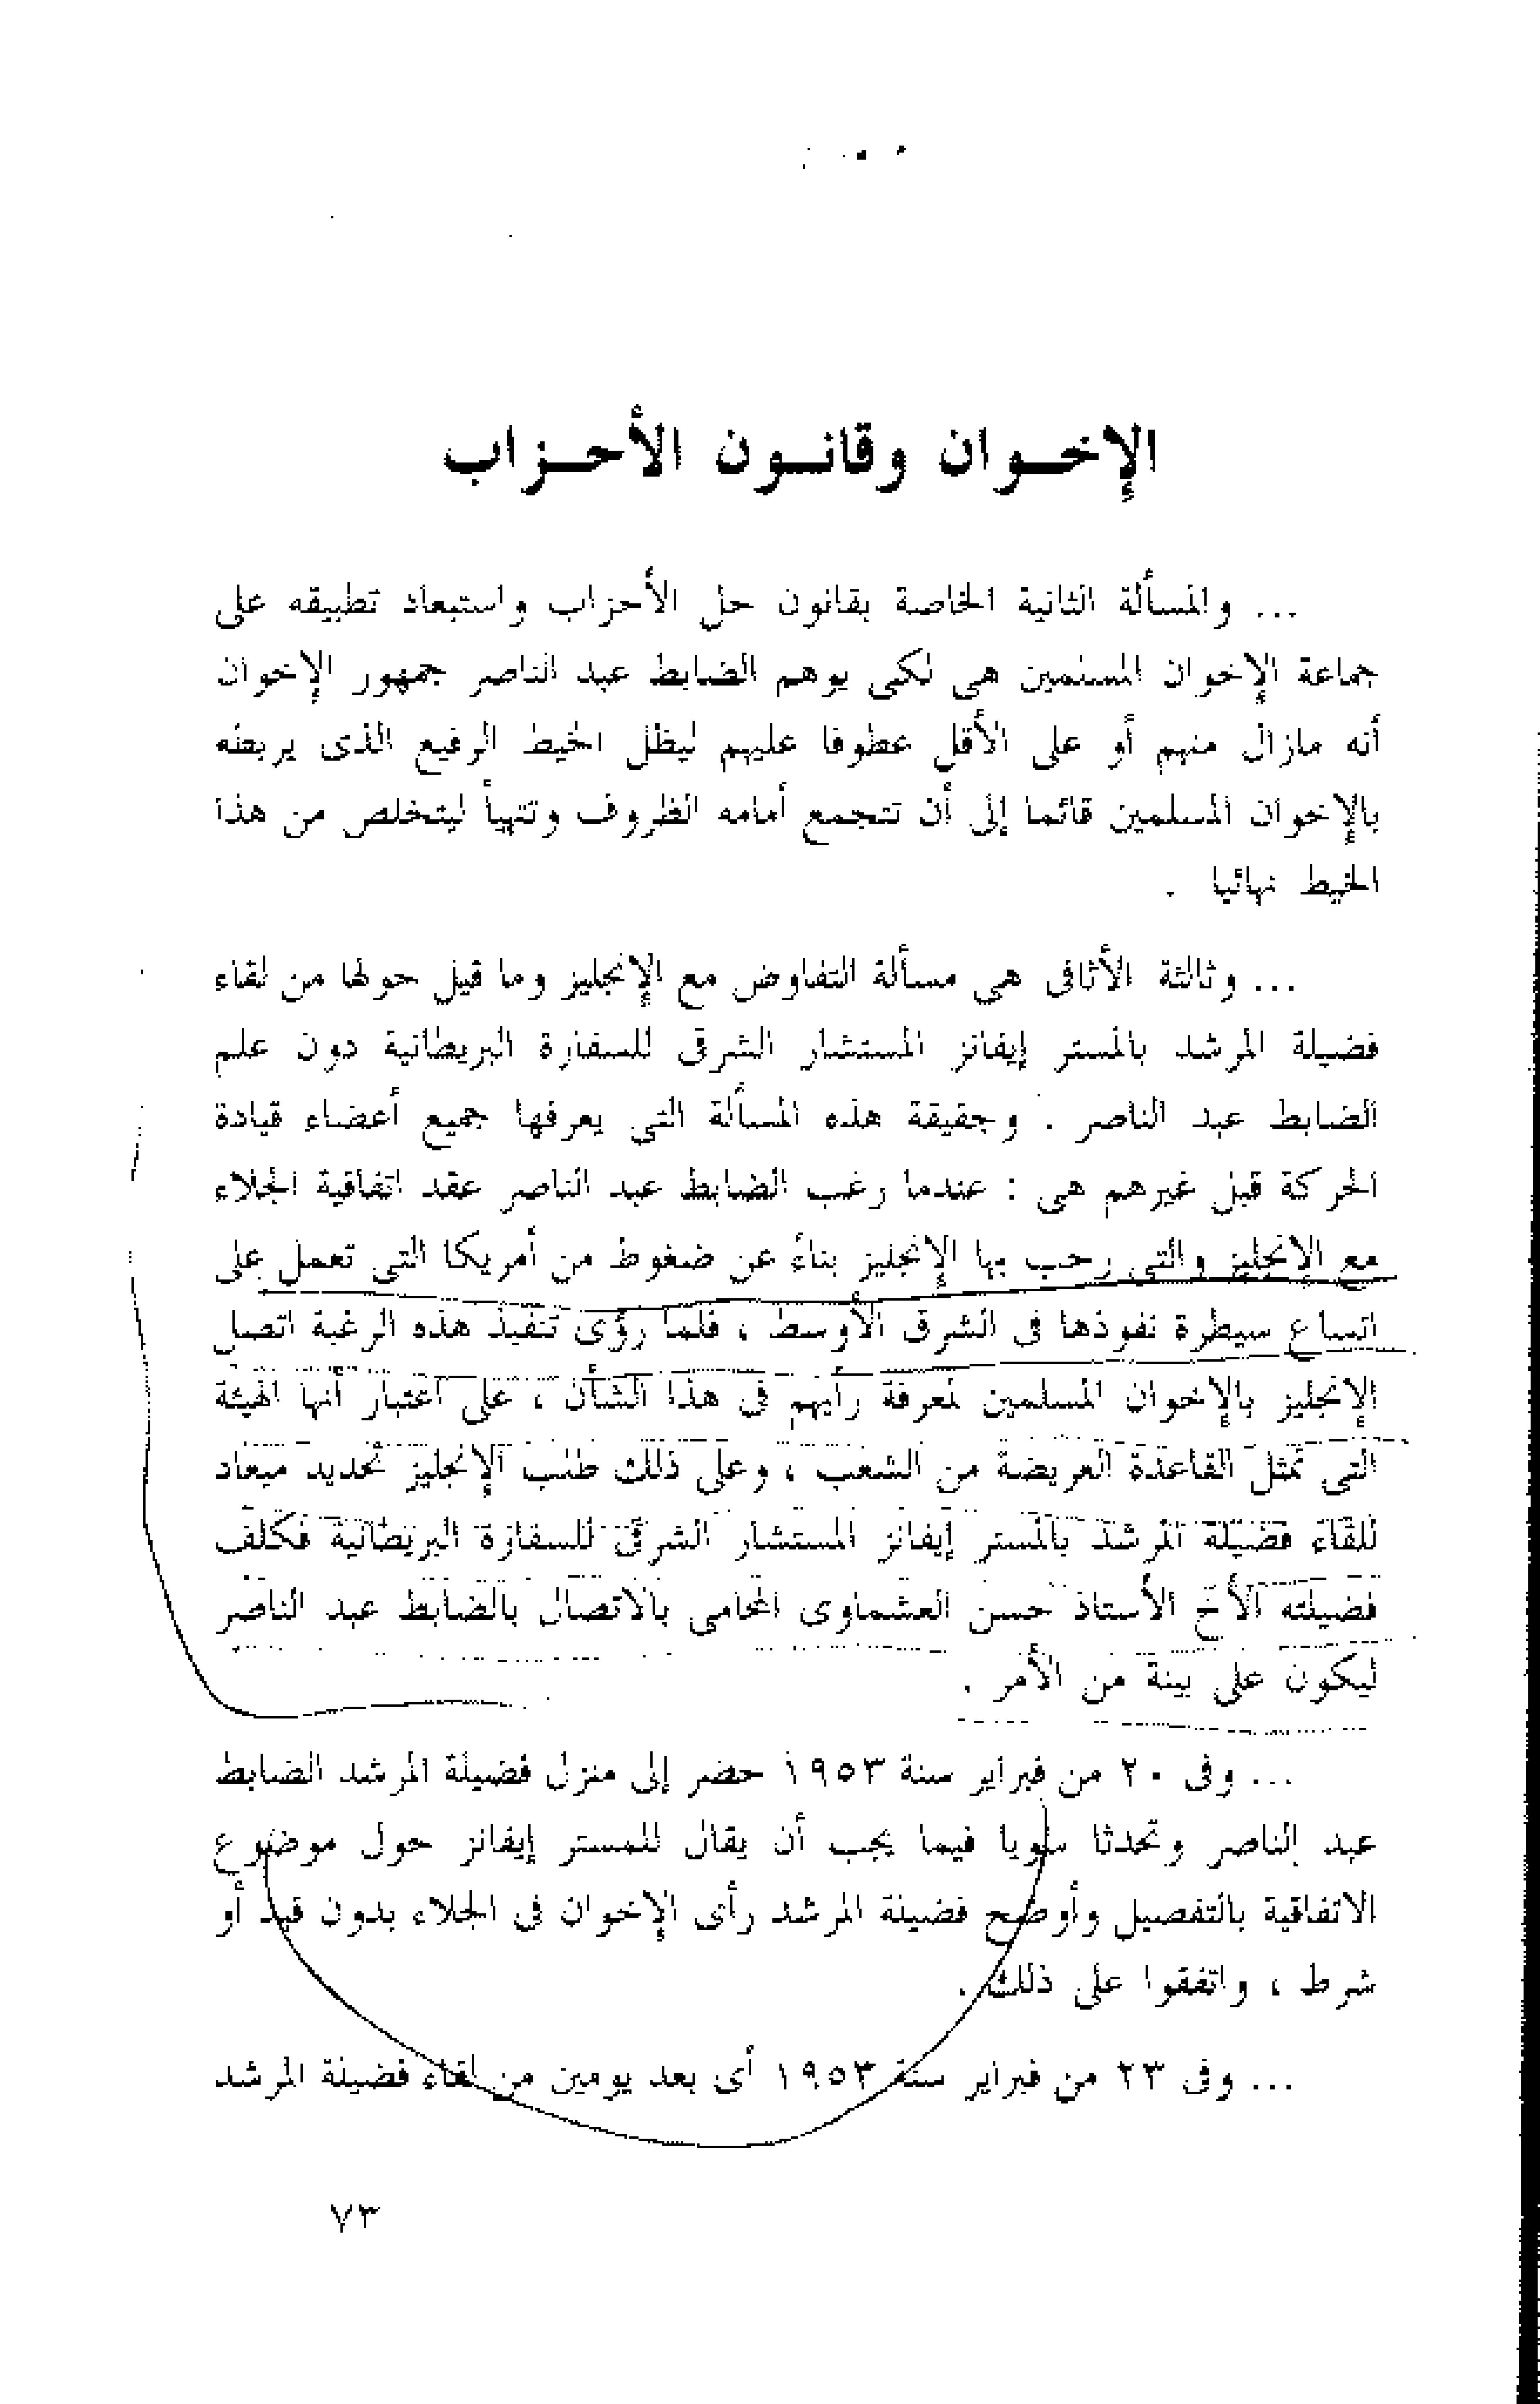 الإخـوان وقانـون الأحـزاب
... والمسألة الثانية الخاصة بقانون حل الأحزاب واستبعاد تطبيقه على
جماعة الإخوان المسلمين هى لكى يوهم الضابط عبد الناصر جمهور الإخوان
أنه مازال منهم أو على الأقل عطوفا عليهم ليظل الخيط الرفيع الذى يربطه
بالإخوان المسلمين قائما إلى أن تتجمع أمامه الظروف وتتهيأ ليتخلص من هذا
الخيط نهائيا .
... وثالثة الأثافى هى مسألة التفاوض مع الإنجليز وما قيل حولها من لقاء
فضيلة المرشد بالمستر إيفانز المستشار الشرقى للسفارة البريطانية دون علم
الضابط عبد الناصر . وحقيقة هذه المسألة التى يعرفها جميع أعضاء قيادة
الحركة قبل غيرهم هى : عندما رغب الضابط عبد الناصر عقد اتفاقية الجلاء
مع الإنجليز والتى رحب بها الإنجليز بناءً عن ضغوط من أمريكا التى تعمل على
اتساع سيطرة نفوذها فى الشرق الأوسط ، فلما رؤى تنفيذ هذه الرغبة اتصل
الإنجليز بالإخوان المسلمين لمعرفة رأيهم فى هذا الشأن ، على اعتبار أنها الهيئة
التى تمثل القاعدة العريضة من الشعب ، وعلى ذلك طلب الإنجليز تحديد ميعاد
للقاء فضيلة المرشد بالمستر إيفانز المستشار الشرقى للسفارة البريطانية فكلف
فضيلته الأخ الأستاذ حسن العشماوى المحامى بالاتصال بالضابط عبد الناصر
ليكون على بينة من الأمر .
... وفى ٢٠ من فبراير سنة ١٩٥٣ حضر إلى منزل فضيلة المرشد الضابط
عبد الناصر وتحدثا سويا فيما يجب أن يقال للمستر إيفانز حول موضوع
الاتفاقية بالتفصيل وأوضح فضيلة المرشد رأى الإخوان فى الجلاء بدون قيد أو
شرط ، واتفقوا على ذلك .
... وفى ٢٣ من فبراير سنة ١٩٥٣ أى بعد يومين من لقاء فضيلة المرشد
٧٣